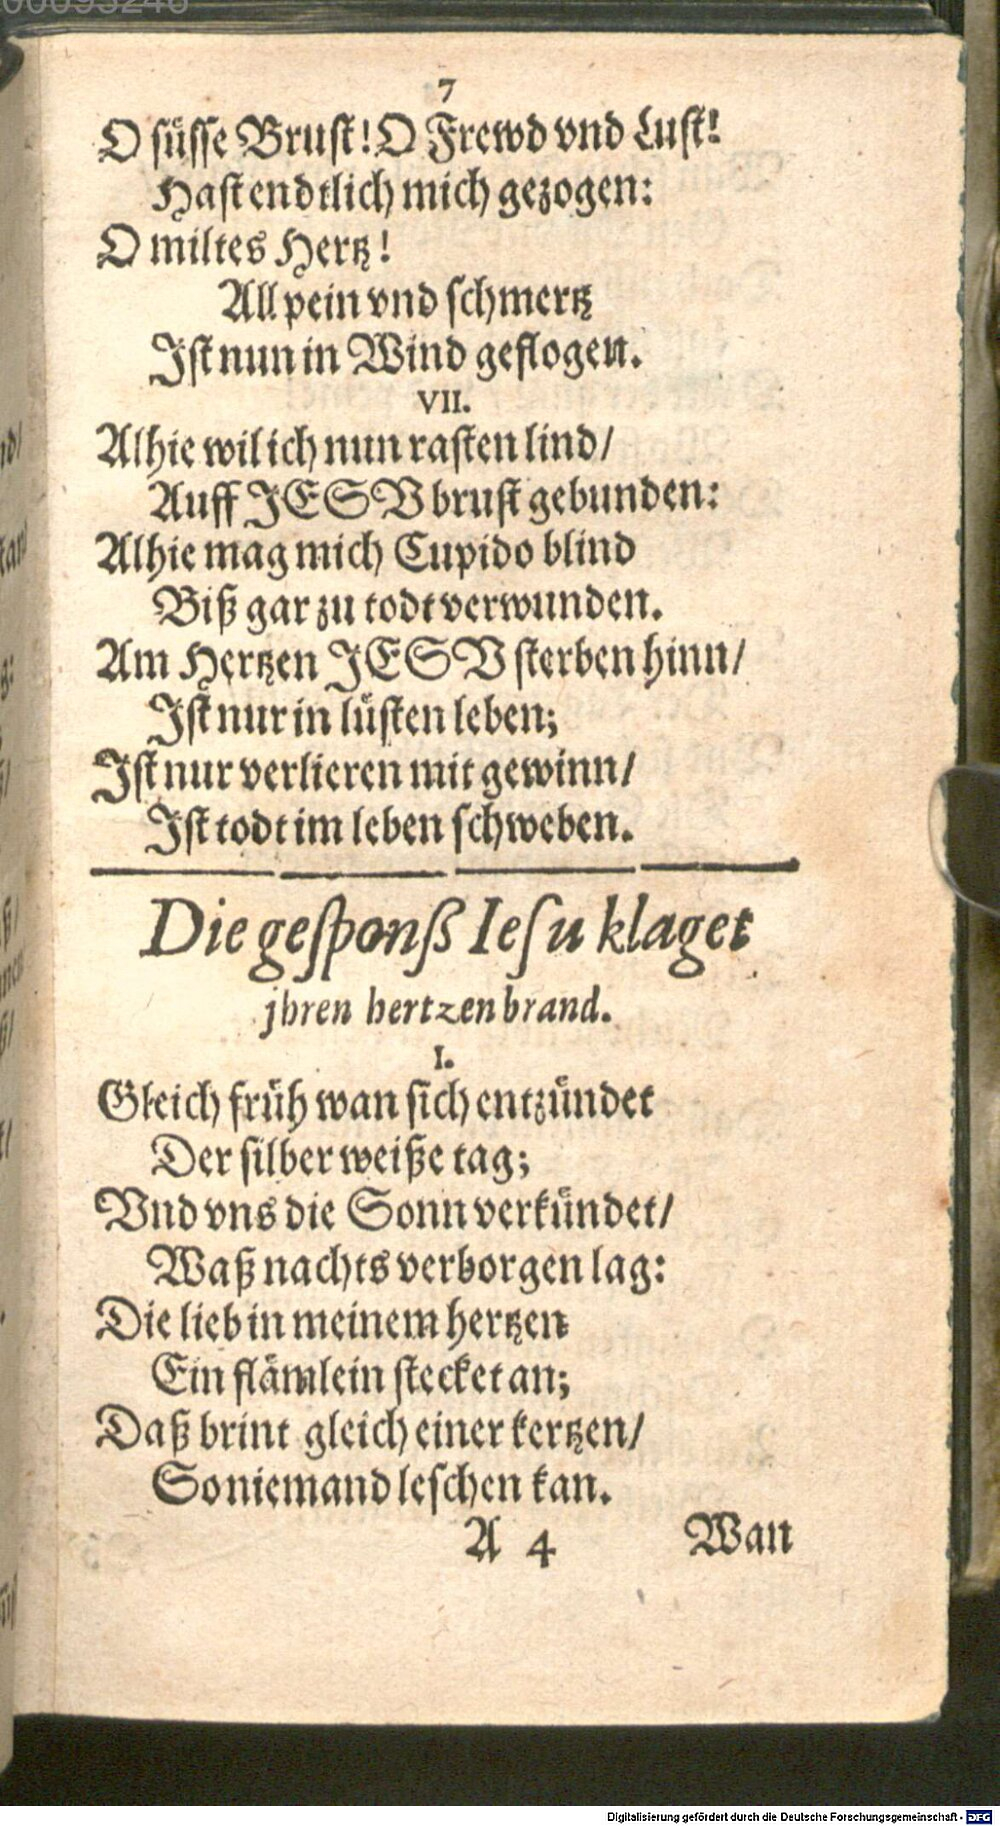 7
O süsse Brust! O Frewd vnd Lust!
Hast endtlich mich gezogen:
O miltes Hertz!
All pein vnd schmertz
Ist nun in Wind geflogen.
VII.
Alhie wil ich nun rasten lind/
Auff JESV brust gebunden:
Alhie mag mich Cupido blind
Biß gar zu todt verwunden.
Am Hertzen JESV sterben hinn/
Ist nur in lüsten leben;
Ist nur verlieren mit gewinn/
Ist todt im leben schweben.
Die gesponß Iesu klaget
jhren hertzenbrand.
I.
Gleich früh wan sich entzündet
Der silber weiße tag;
Vnd vns die Sonn verkündet/
Waß nachts verborgen lag:
Die lieb in meinem hertzen
Ein flämlein stecket an;
Daß brint gleich einer kertzen/
So niemand leschen kan.
A 4 Wan
Digitalisierung gefördert durch die Deutsche Forschungsgemeinschaft - DFG